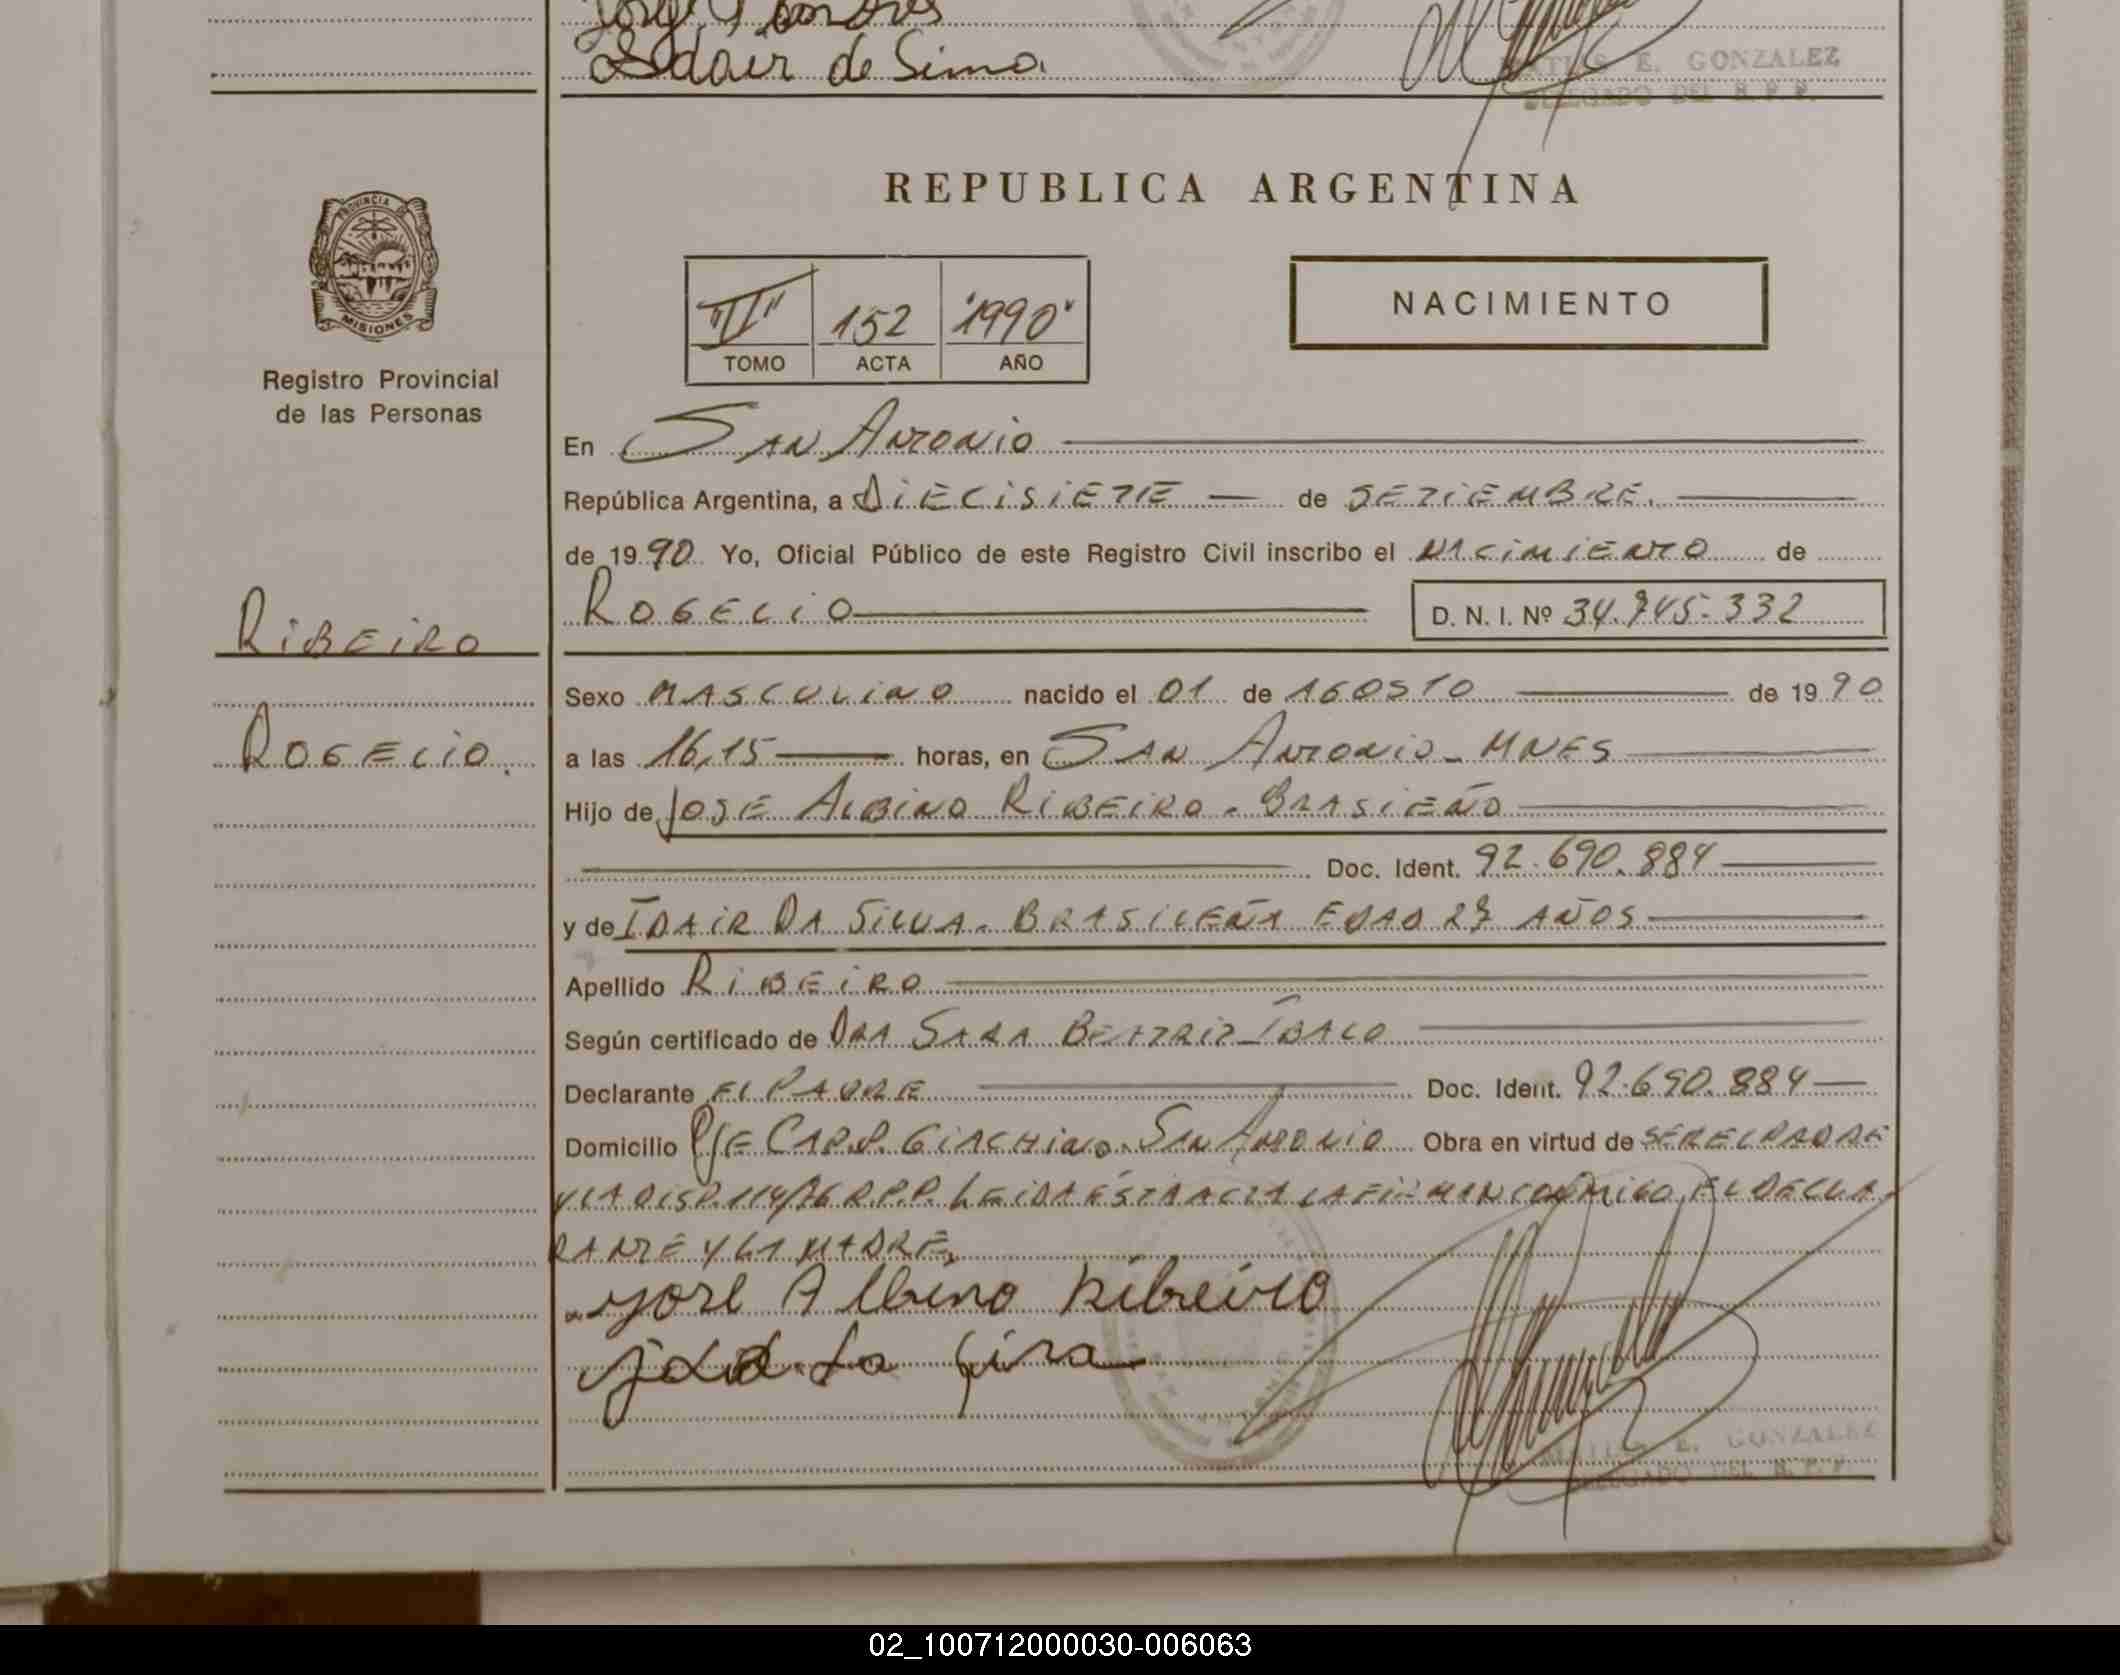 Jorge Ramores
Idair de Sima.
MATIAS E. GONZALEZ
DELEGADO DEL R. P. P.
PROVINCIA DE
MISIONES
Registro Provincial
de las Personas
REPUBLICA ARGENTINA
"III" 152 "1990"
TOMO ACTA AÑO
NACIMIENTO
En SAN ANTONIO
República Argentina, a DIECISIETE de SETIEMBRE.
de 1990 Yo, Oficial Público de este Registro Civil inscribo el NACIMIENTO de
ROGELIO D. N. I. Nº 34.745.332
RIBEIRO
ROGELIO.
Sexo MASCULINO nacido el 01 de AGOSTO de 1990
a las 16,15 horas, en SAN ANTONIO - MNES
Hijo de JOSE ALBINO RIBEIRO - BRASIEÑO
Doc. Ident. 92.690.884
y de IDAIR DA SILVA - BRASILEÑA EDAD AÑOS
Apellido RIBEIRO
Según certificado de DRA SARA BEATRIZ
Declarante EL PADRE Doc. Ident. 92.690.884
Domicilio PJE CAP. P. GIACHINO - SAN ANTONIO Obra en virtud de SER EL PADRE
Y LA DISP. 114/76 R.P.P. LEIDA ESTA ACTA LA FIRMAN CONMIGO EL DECLA
RANTE Y LA MADRE.
Jose Albino Ribeiro
MATIAS E. GONZALEZ
DELEGADO DEL R. P. P.
02_100712000030-006063